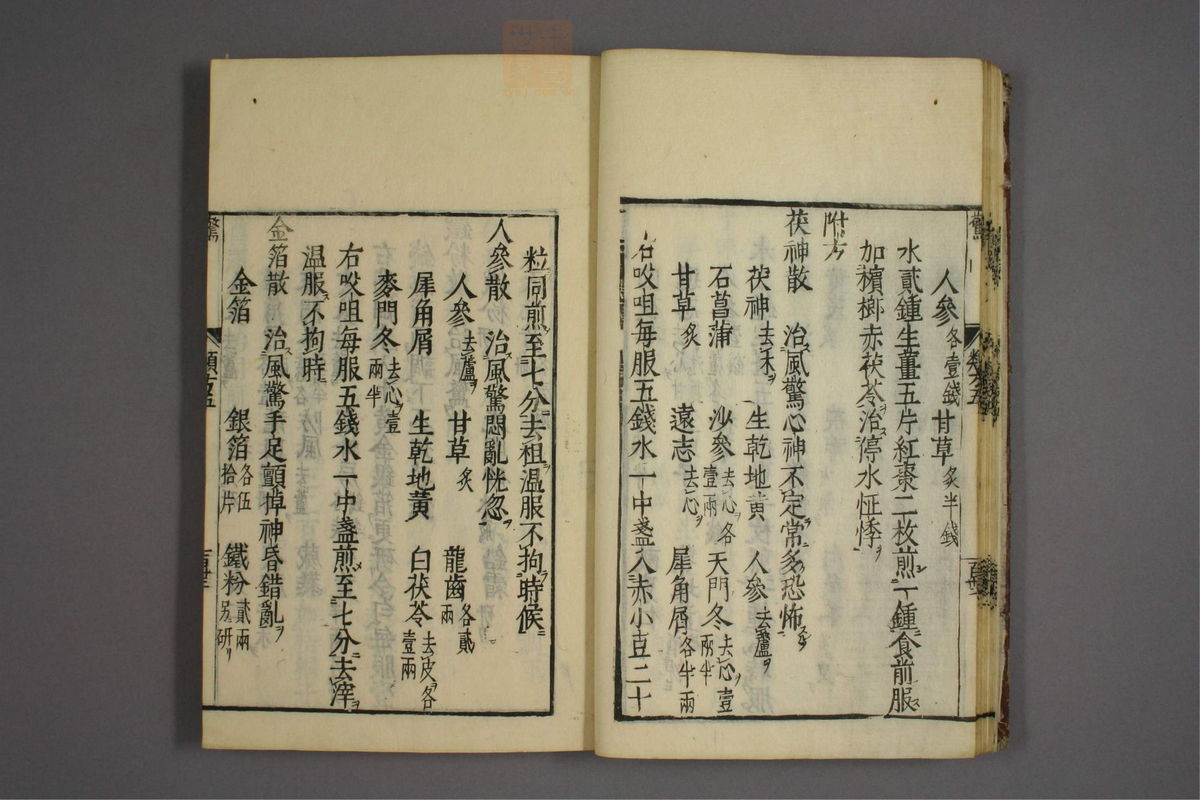 人參各壹錢甘草炙半錢
水貳鍾生薑五片紅棗二枚煎一鍾食前服
加檳榔赤茯苓治停水怔悸
附方
茯神散 治風驚心神不定常多恐怖
茯神去木 生乾地黄 人參去蘆
石菖蒲 沙參去心各壹兩 天門冬去心壹兩半
甘草炙 遠志去心 犀角屑各半兩
右㕮咀每服五錢水一中盞入赤小豆二十
粒同煎至七分去柤温服不拘時候
人參散 治風驚悶亂恍忽
人參去蘆 甘草炙 龍齒各貳兩
犀角屑 生乾地黄 白茯苓去皮各壹兩
麥門冬去心壹兩半
右㕮咀每服五錢水一中盞煎至七分去滓
温服不拘時
金箔散 治風驚手足顫掉神昏錯亂
金箔 銀箔各伍拾片 鐵粉貳兩另研
驚